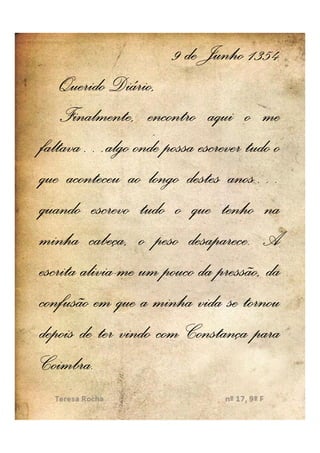 9 de Junho 1354
Querido Diário,
Finalmente, encontro aqui o me
faltava ...algo onde possa escrever tudo o
que aconteceu ao longo destes anos...
quando escrevo tudo o que tenho na
minha cabeça, o peso desaparece. A
escrita alivia-me um pouco da pressão, da
confusão em que a minha vida se tornou
depois de ter vindo com Constança para
Coimbra.
Teresa Rocha nº 17, 9º F